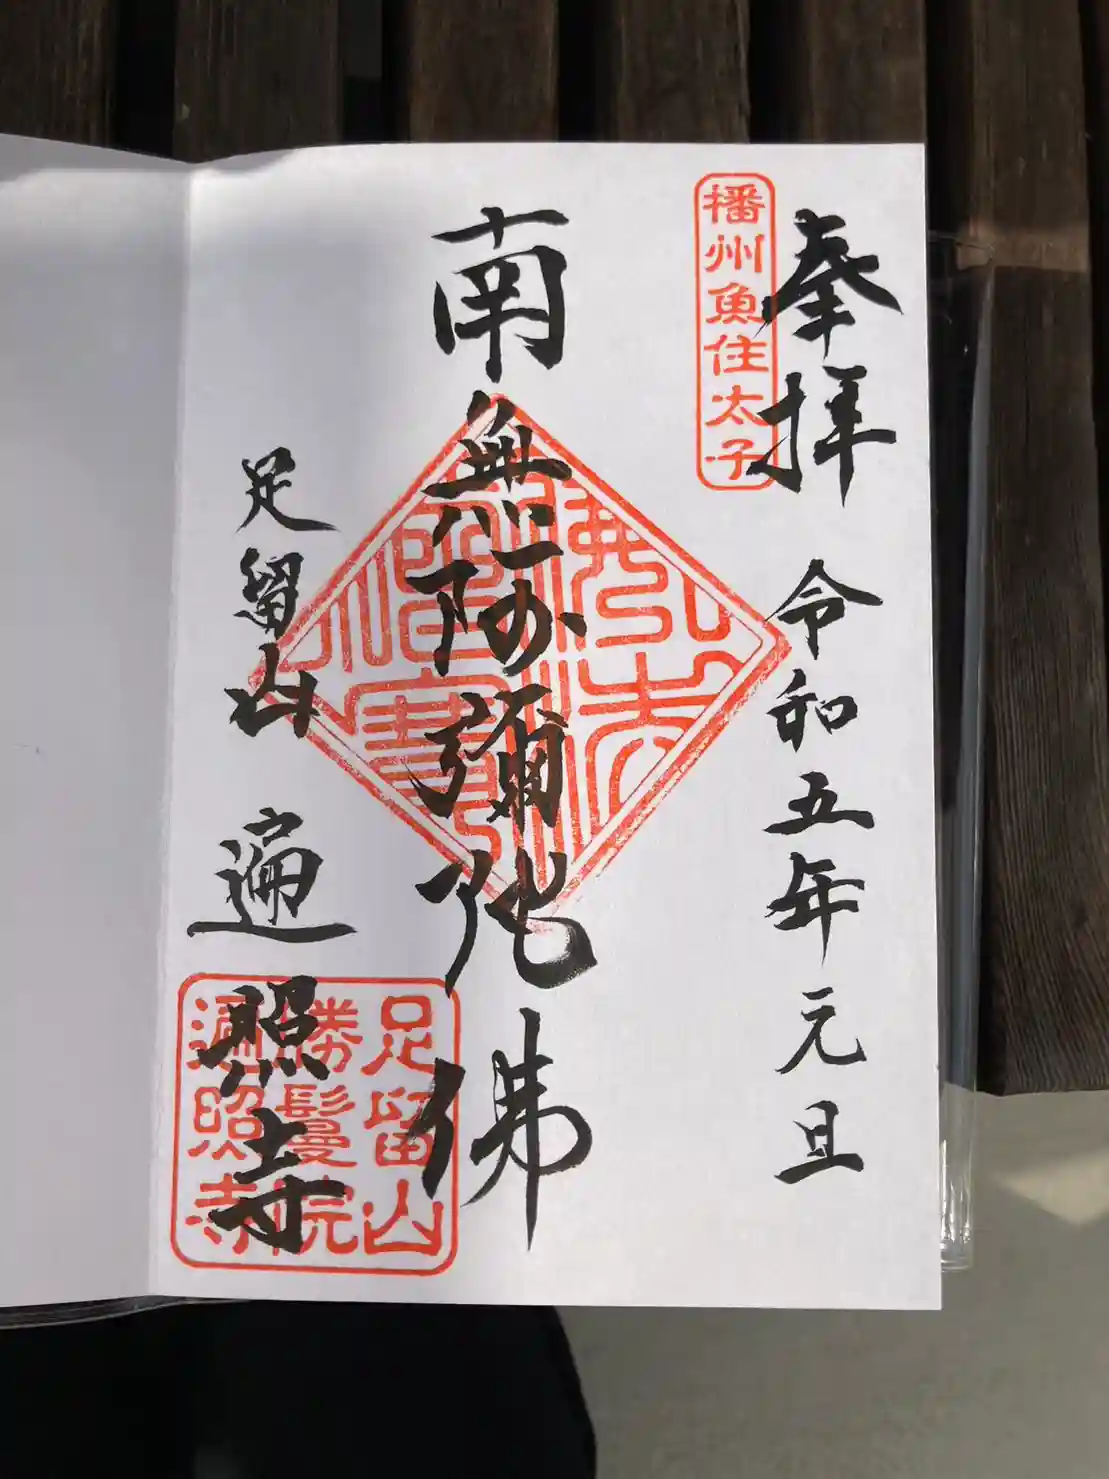 奉拝 令和五年元旦
播州魚住太子
南無阿彌陀佛
佛法僧寶
足留山 遍照寺
足留山
勝鬘院
遍照寺